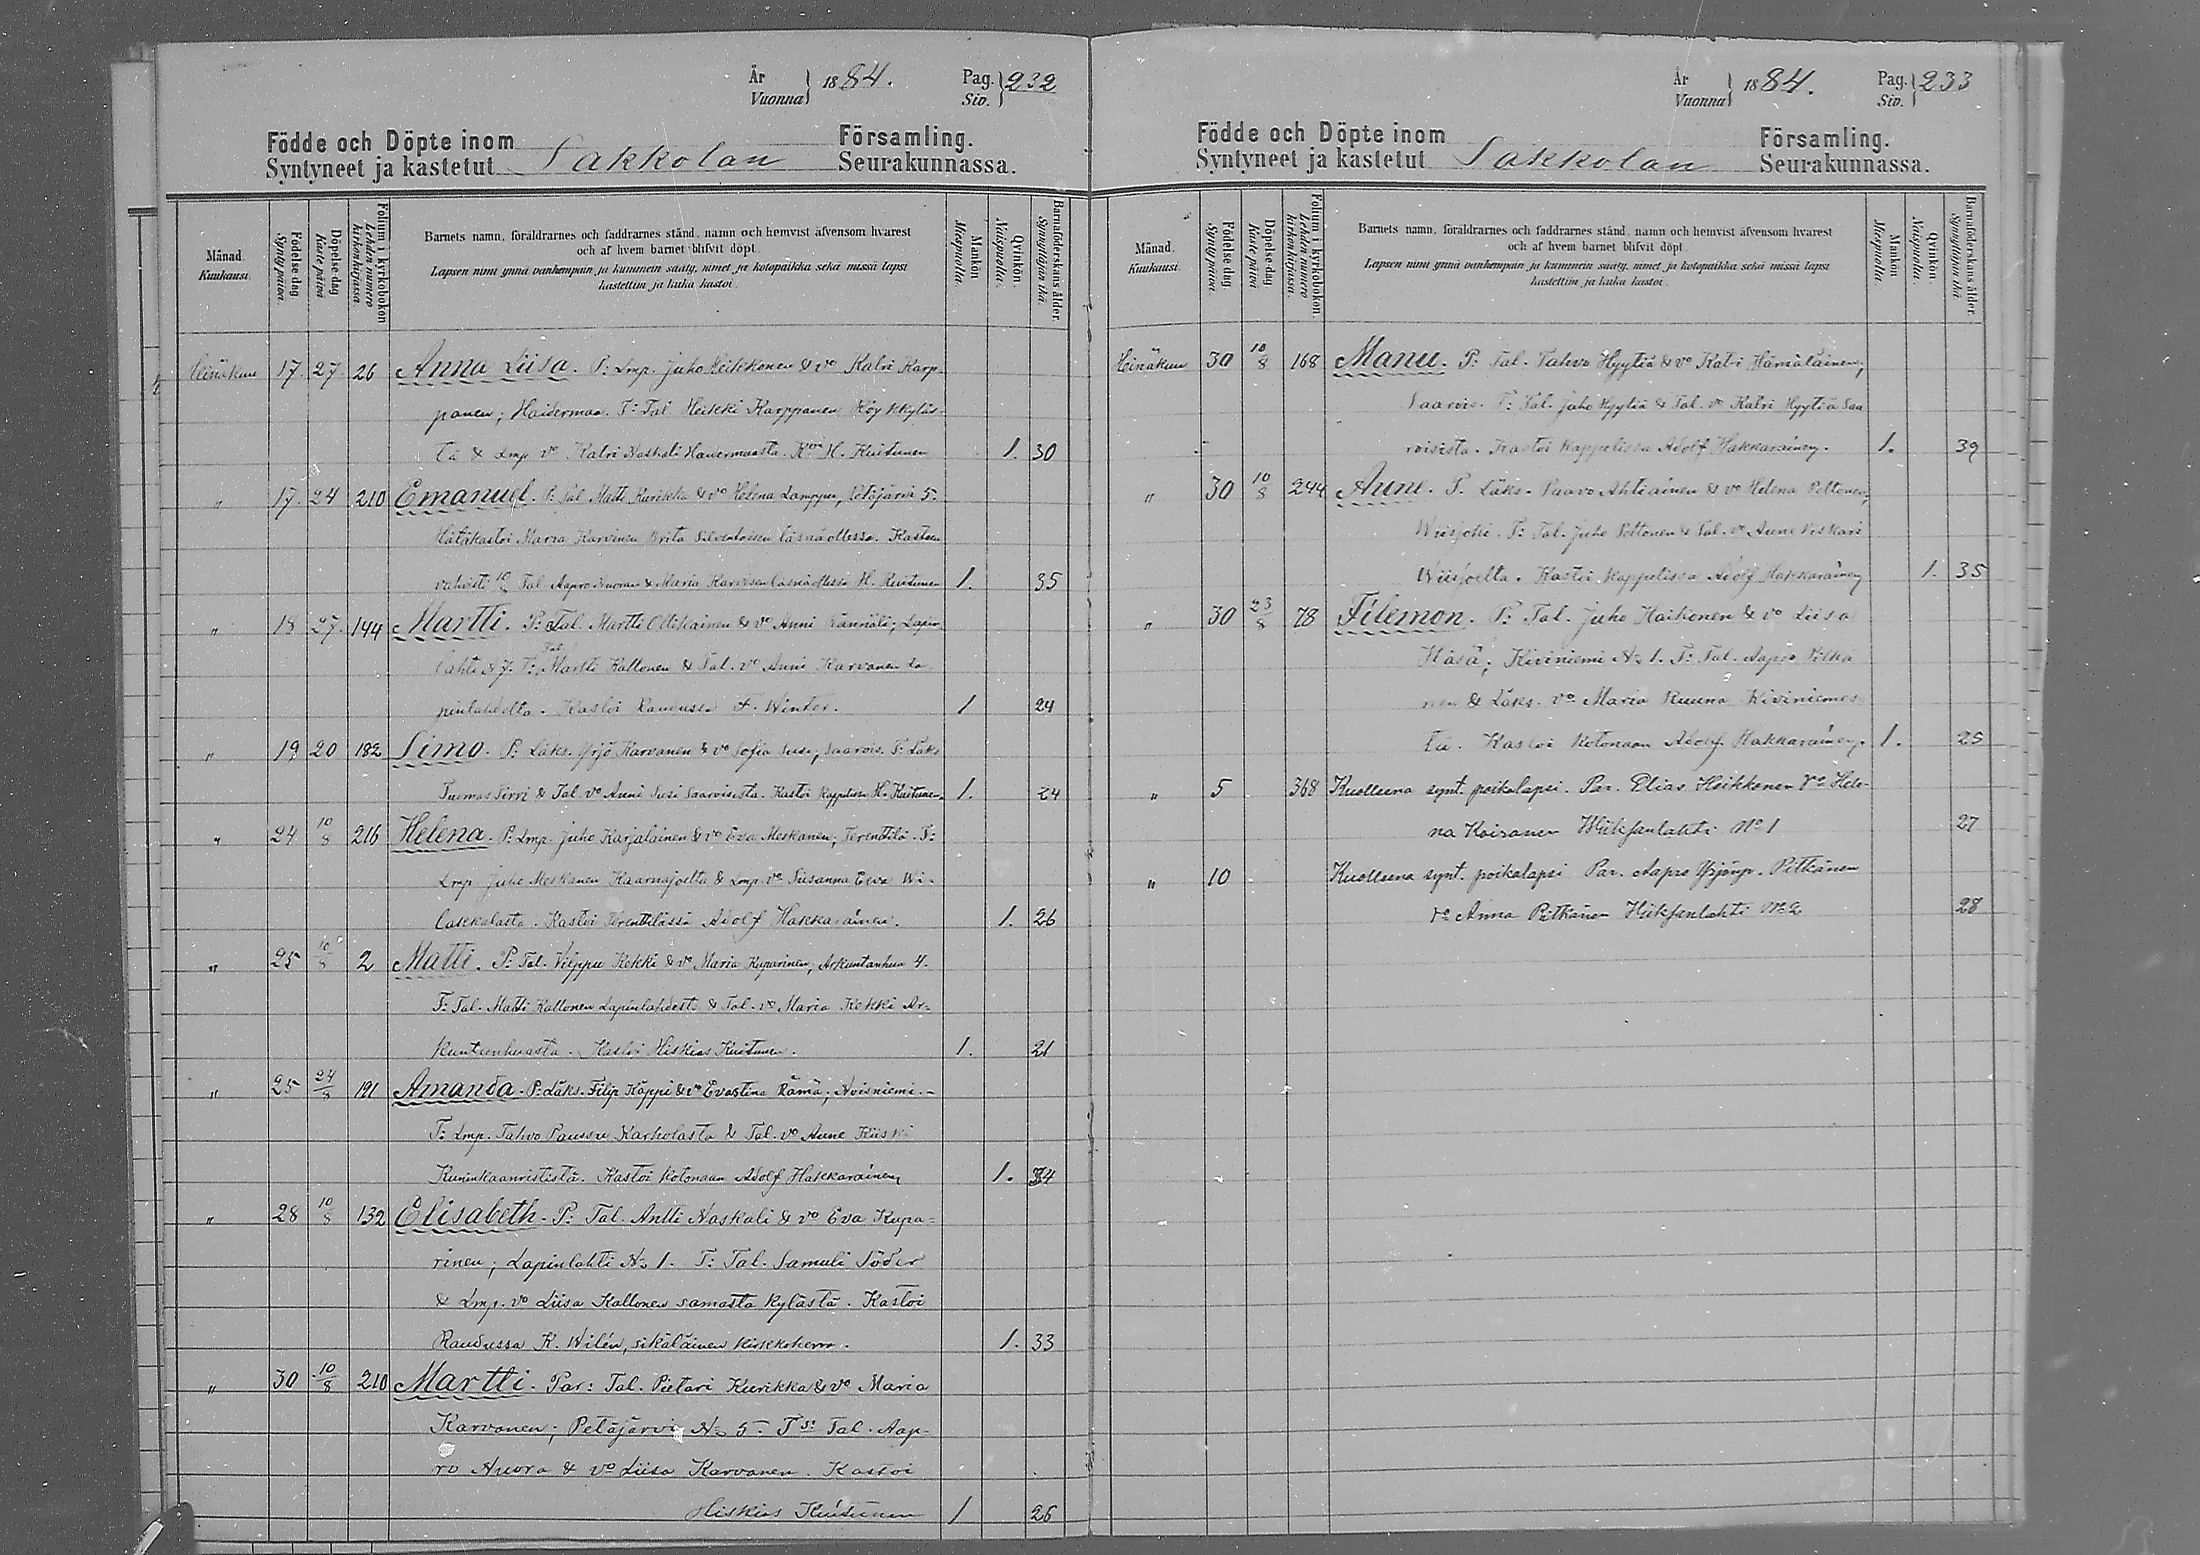 År
Vuonna } 1884.
Pag.
Siv. } 232
Födde och Döpte inom
Syntyneet ja kastetut Sakkolan
Församling.
Seurakunnassa.
Månad.
Kuukausi.
Födelse-dag
Syntypäivä.
Döpelse-dag
Kaste päivä
Folium i kyrkoboken
Lehden numero
kirkonkirjassa.
Barnets namn, föräldrarnes och faddrarnes stånd, namn och hemvist äfvensom hvarest
och af hvem barnet blifvit döpt.
Lapsen nimi ynnä vanhempain ja kummein sääty, nimet ja kotopaikka sekä missä lapsi
kastettiin ja kuka kastoi.
Mankön
Miespuolia.
Qvinkön.
Naispuolia.
Barnaföderskans ålder.
Synnyttäjän ikä.
Heinäkuu 17. 27. 26 Anna Liisa. P: Lmp. Juho Heikkonen & vo Katri Karp-
panen; Haidermaa. T: Tal Heikki Karppanen Röykkyläs-
tä & Lmp vo Katri Naskali Hauermaasta. Koi H. Kuitunen 1. 30
" 17. 24 210 Emanuel. P: Tal Matti Kurikka & vo Helena Lamppu, Petäjärvi 5.
Hätäkastoi Maria Karvinen Brita Silventoisen läsnäollessa. Kasteen
vahvisti Tal Aapro Nuoran & Maria Karvisen läsnäollessa H. Kuitunen 1. 35
" 18 27. 144 Martti. P: Tal. Martti Ollikainen & vo Anni Rännäli; Lapin-
lahti & 7. T: Tal. Martti Kaltonen & Tal. vo Anni Karvanen La-
pinlahdelta. Kastoi Raudussa F. Winter. 1 24
" 19 20 182 Simo. P: Läks. Yrjö Karvanen & vo Sofia Susi, Saarois. T: Läks
Tuomas Sirri & Tal. vo Anni Susi Saaroisista. Kastoi kappelissa H. Kuitunen. 1. 24
" 24 10/8 216 Helena. P: Lmp. Juho Karjalainen & vo Eva Meskanen; Terenttilä. T:
Lmp. Juho Meskanen Haarnajoelta & Lmp. vo Susanna Eeva Wi-
lakkalasta. Kastoi Terenttilässä Adolf Hakkarainen. 1. 26
" 25 10/8 2 Matti. P: Tal. Vilppu Kekki & vo Maria Kuparinen, Arkuntanhua 4.
T: Tal. Matti Kaltonen Lapinlahdesta & Tal. vo Maria Kekki Ar-
kuntanhuasta. Kastoi Hiskias Kuitunen. 1. 21
" 25 24/8 191 Amanda. P: Läks. Filip Käppi & vo Evastina Rämä; Noisniemi.-
T: Lmp. Tahvo Paussu Karholasta & Tal. vo Anne Kiiski
Kuninkaanrististä. Kastoi kotonaan Adolf Hakkarainen 1. 34
" 28 10/8 132 Elisabeth. P: Tal. Antti Naskali & vo Eva Kupa-
rinen; Lapinlahti No 1. T: Tal. Samuli Söder
& Lmp. vo Liisa Kaltonen samasta kylästä. Kastoi
Raudussa K. Wilén, sikäläinen kirkkoherra. 1. 33
" 30 10/8 210 Martti. Par: Tal. Pietari Kurikka & vo Maria
Karvonen; Petäjärvi No 5. Ts: Tal. Aap-
ro Nuora & vo Liisa Karvanen. Kastoi
Hiskias Kuitunen 1 26
År
Vuonna } 1884.
Pag.
Siv. } 233
Födde och Döpte inom
Syntyneet ja kastetut Sakkolan
Församling.
Seurakunnassa.
Månad.
Kuukausi.
Födelse-dag
Syntypäivä.
Döpelse-dag
Kaste päivä
Folium i kyrkoboken.
Lehden numero
kirkonkirjassa.
Barnets namn, föräldrarnes och faddrarnes stånd, namn och hemvist äfvensom hvarest
och af hvem barnet blifvit döpt.
Lapsen nimi ynnä vanhempain ja kummein sääty, nimet ja kotopaikka sekä missä lapsi
kastettiin ja kuka kastoi.
Mankön
Miespuolia.
Qvinkön.
Naispuolia.
Barnaföderskans ålder.
Synnyttäjän ikä
Heinäkuu 30 10/8 168 Manu. P: Tal. Tahvo Hyytiä & vo Katri Hämäläinen,
Saarois. T: Tal. Juho Hyytiä & Tal. vo Katri Hyytiä Saa
roisista. Kastoi kappelissa Adolf Hakkarainen. 1. 39
" 30 10/8 244 Anne. P. Läks. Paavo Ahtiainen & vo Helena Peltonen,
Wiisjoki. T: Tal. Juho Peltonen & Tal. vo Anne Kiskari
Wiisjoelta. Kastoi kappelissa Adolf Hakkarainen 1. 35
" 30 23/8 78 Filemon. P: Tal. Juho Haikonen & vo Liisa
Häsä; Kiviniemi No 1. T: Tal. Aapro Pitkä
nen & Läks. vo Maria Kuuna Kiviniemes
tä. Kastoi kotonaan Adolf Hakkarainen. 1. 25
" 5 368 Kuolleena synt. poikalapsi. Par. Elias Heikkonen vo Hele-
na Koisanen Haitsanlahti No 1 27
" 10 Kuolleena synt. poikalapsi Par. Aapro Yrjönp. Pitkänen
vo Anna Pitkänen Haitsanlahti No 2 28